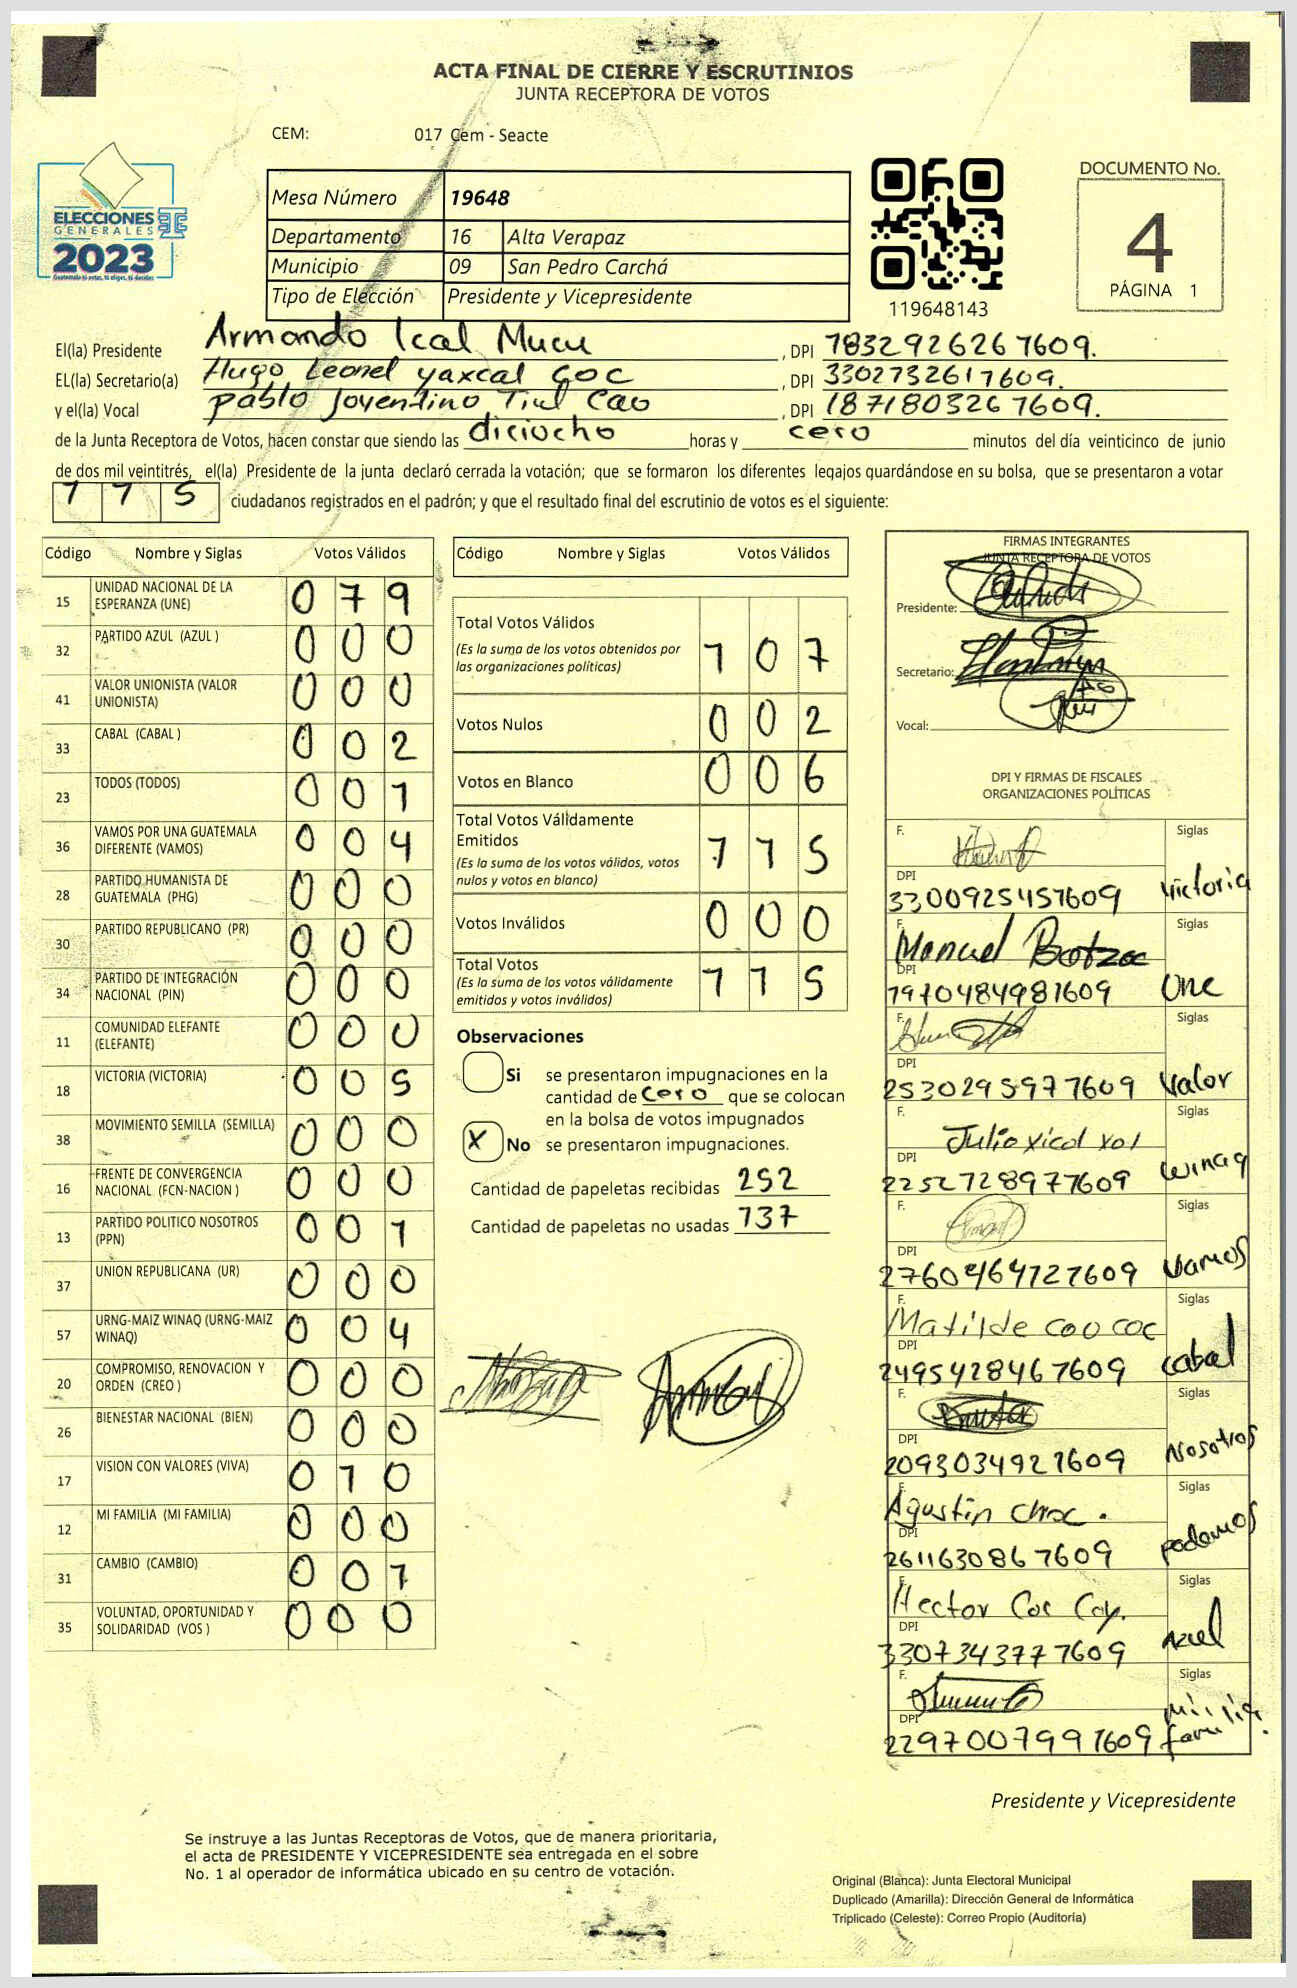 ACTA FINAL DE CIERRE Y ESCRUTINIOS
JUNTA RECEPTORA DE VOTOS
CEM: 017 Cem - Seacte
ELECCIONES
GENERALES
2023
Mesa Número 19648
Departamento 16 Alta Verapaz
Municipio 09 San Pedro Carchá
Tipo de Elección Presidente y Vicepresidente
119648143
DOCUMENTO No.
4
PÁGINA 1
El(la) Presidente Armando Ical Mucu , DPI 1832926267609.
EL(la) Secretario(a) Hugo Leonel yaxcal COC , DPI 3302732617609.
y el(la) Vocal pablo Joventino Tiul Cao , DPI 1871803267609.
de la Junta Receptora de Votos, hacen constar que siendo las diciocho horas y cero minutos del día veinticinco de junio
de dos mil veintitrés, el(la) Presidente de la junta declaró cerrada la votación; que se formaron los diferentes legajos guardándose en su bolsa, que se presentaron a votar
115 ciudadanos registrados en el padrón; y que el resultado final del escrutinio de votos es el siguiente:
Código Nombre y Siglas Votos Válidos
15 UNIDAD NACIONAL DE LA ESPERANZA (UNE) 079
32 PARTIDO AZUL (AZUL ) 000
41 VALOR UNIONISTA (VALOR UNIONISTA) 000
33 CABAL (CABAL ) 002
23 TODOS (TODOS) 001
36 VAMOS POR UNA GUATEMALA DIFERENTE (VAMOS) 004
28 PARTIDO HUMANISTA DE GUATEMALA (PHG) 000
30 PARTIDO REPUBLICANO (PR) 000
34 PARTIDO DE INTEGRACIÓN NACIONAL (PIN) 000
11 COMUNIDAD ELEFANTE (ELEFANTE) 000
18 VICTORIA (VICTORIA) 005
38 MOVIMIENTO SEMILLA (SEMILLA) 000
16 FRENTE DE CONVERGENCIA NACIONAL (FCN-NACION ) 000
13 PARTIDO POLITICO NOSOTROS (PPN) 001
37 UNION REPUBLICANA (UR) 000
57 URNG-MAIZ WINAQ (URNG-MAIZ WINAQ) 004
20 COMPROMISO, RENOVACION Y ORDEN (CREO ) 000
26 BIENESTAR NACIONAL (BIEN) 000
17 VISION CON VALORES (VIVA) 010
12 MI FAMILIA (MI FAMILIA) 000
31 CAMBIO (CAMBIO) 001
35 VOLUNTAD, OPORTUNIDAD Y SOLIDARIDAD (VOS ) 000
Código Nombre y Siglas Votos Válidos
Total Votos Válidos
(Es la suma de los votos obtenidos por
las organizaciones políticas) 107
Votos Nulos 002
Votos en Blanco 006
Total Votos Válidamente
Emitidos
(Es la suma de los votos válidos, votos
nulos y votos en blanco) 115
Votos Inválidos 000
Total Votos
(Es la suma de los votos válidamente
emitidos y votos inválidos) 115
Observaciones
Si se presentaron impugnaciones en la
cantidad de cero que se colocan
en la bolsa de votos impugnados
X No se presentaron impugnaciones.
Cantidad de papeletas recibidas 252
Cantidad de papeletas no usadas 137
FIRMAS INTEGRANTES
JUNTA RECEPTORA DE VOTOS
Presidente:
Secretario:
Vocal:
DPI Y FIRMAS DE FISCALES
ORGANIZACIONES POLÍTICAS
F. Siglas
DPI
3300925451609 victoria
F. Manuel Botzoc Siglas
DPI
1970484981609 Une
F. Siglas
DPI
2530295971609 Valor
F. Julio xicol xol Siglas
DPI
2252728971609 winaq
F. Siglas
DPI
2760464121609 Vamos
F. Matilde coo coc Siglas
DPI
2495428467609 cabal
F. Siglas
DPI
2093034921609 Nosotros
F. Agustin choc. Siglas
DPI
2611630867609 podemos
F. Hector Coc Cay. Siglas
DPI
3307343771609 Azul
F. Siglas
DPI
2297007991609 mi familia.
Presidente y Vicepresidente
Se instruye a las Juntas Receptoras de Votos, que de manera prioritaria,
el acta de PRESIDENTE Y VICEPRESIDENTE sea entregada en el sobre
No. 1 al operador de informática ubicado en su centro de votación.
Original (Blanca): Junta Electoral Municipal
Duplicado (Amarilla): Dirección General de Informática
Triplicado (Celeste): Correo Propio (Auditoría)